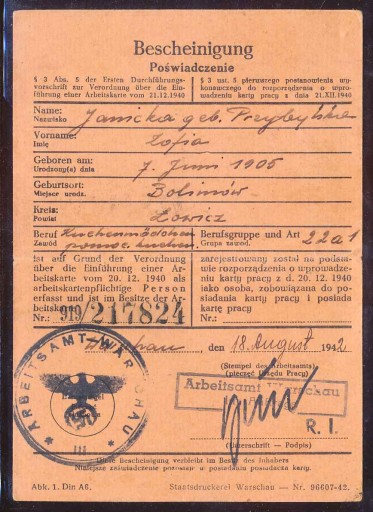 Bescheinigung
Poświadczenie
§ 3 Abs. 5 der Ersten Durchführungs-
vorschrift zur Verordnung über die Ein-
führung einer Arbeitskarte vom 21.12.1940
§ 3 ust. 5 pierwszego postanowienia wy-
konawczego do rozporządzenia o wpro-
wadzeniu karty pracy z dnia 21.XII.1940
Name: Janicka geb. Przybylska
Nazwisko
Vorname: Zofia
Imię
Geboren am: 7. Juni 1905
Urodzony(a) dnia
Geburtsort: Bolimów
Miejsce urodz.
Kreis: Łowicz
Powiat
Beruf Küchenmädchen Berufsgruppe und Art 22a1
Zawód pomoc. kuchen. Grupa zawod.
ist auf Grund der Verordnung
über die Einführung einer Ar-
beitskarte vom 20. 12. 1940 als
arbeitskartenpflichtige Person
erfasst und ist im Besitze der Ar-
beitskarte
Nr.: 919/217824
zarejestrowany został na podsta-
wie rozporządzenia o wprowadze-
niu karty pracy z d. 20. 12. 1940
jako osoba, zobowiązana do po-
siadania karty pracy i posiada
kartę pracy
Warschau, den 18. August 1942
(Stempel des Arbeitsamts)
(pieczęć Urzędu Pracy)
ARBEITSAMT WARSCHAU
Arbeitsamt Warschau
R. I.
(Unterschrift — Podpis)
Diese Bescheinigung verbleibt im Besitz des Inhabers
Niniejsze zaświadczenie pozostaje w posiadaniu posiadacza karty.
Abk. 1. Din A6.
Staatsdruckerei Warschau — Nr. 96607-42.